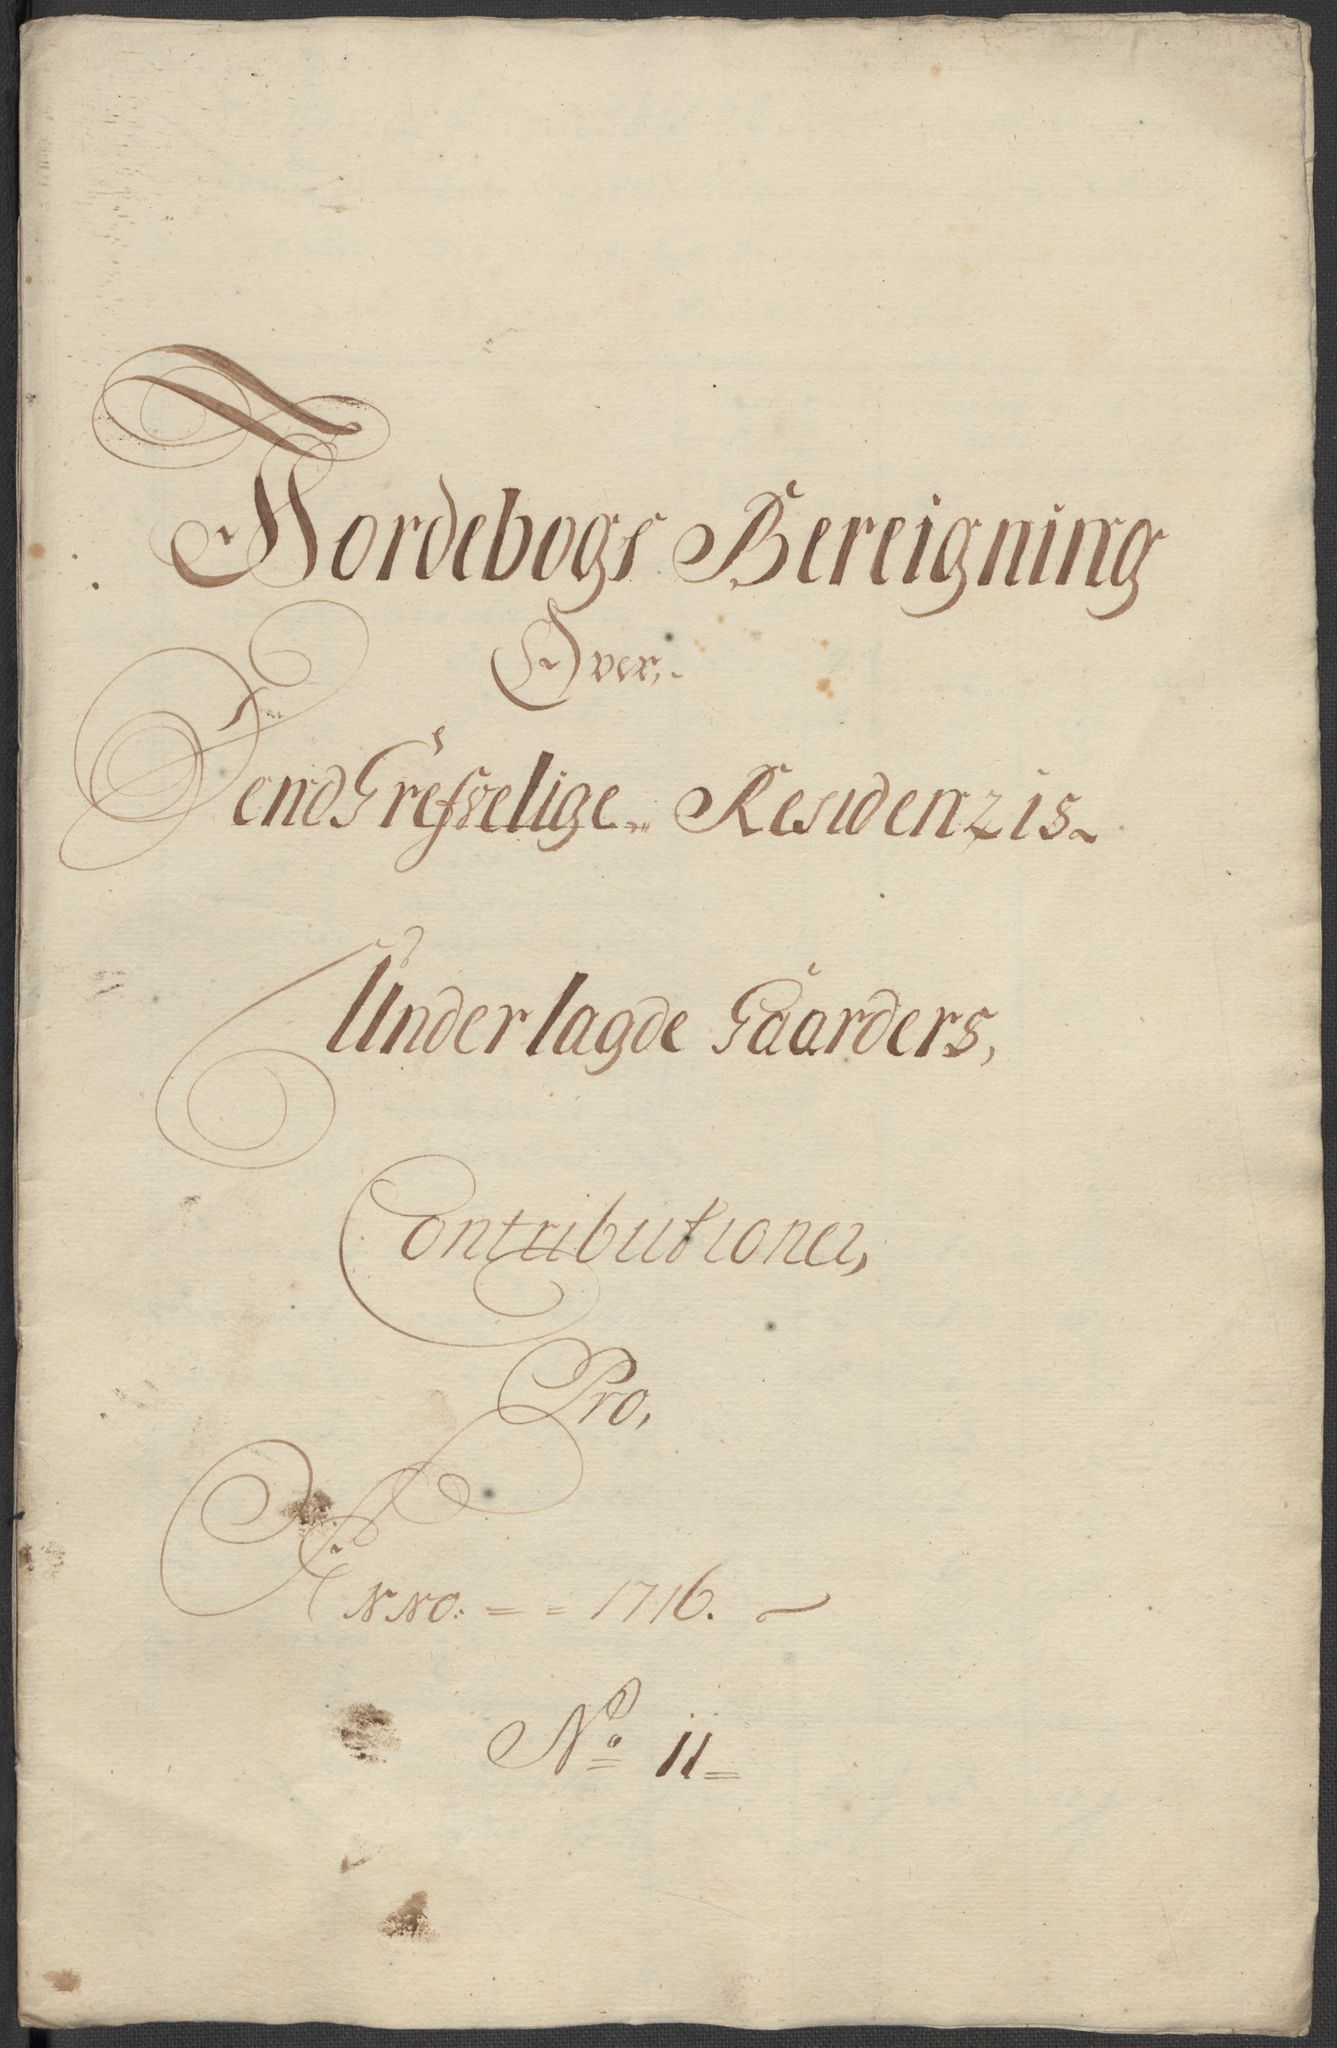 Jordebogs Bereigning
Over,
Dend Grefvelige Residenzis
Underlagde Gaarders,
Contributioner,
Pro,
ANNO: = = 1716.
No 11